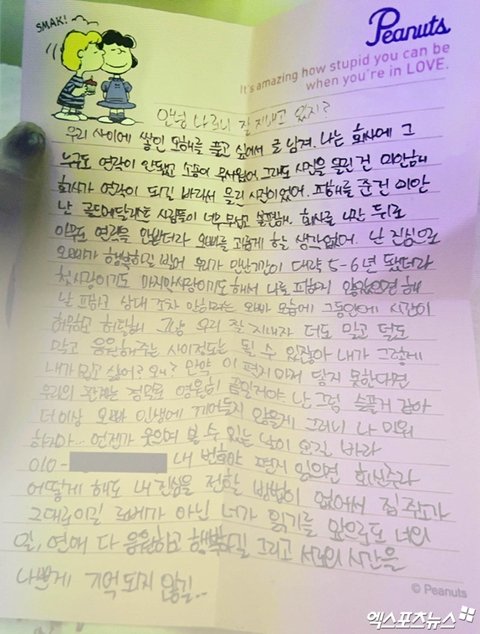 SMAK!
Peanuts
It's amazing how stupid you can be
when you're in LOVE.
안녕 나 루나 잘 지내고 있지?
우리 사이에 쌓인 오해를 풀고 싶어서 글 남겨. 나는 회사에 그
누구도 연락이 안됐고 소송이 무서웠어. 그래도 사진을 올린 건 미안해
회사가 연락이 되길 바라서 올린 사진이었어. 피해를 준건 미안
난 골드메달리스트 사람들이 너무 무섭고 불편해. 회사를 나간 뒤로
아무 연락을 안받더라 오빠를 괴롭게 할 생각 없어. 난 진심으로
오빠가 행복하길 빌어 우리가 만난 기간이 대략 5-6년 됐더라
첫사랑이기도 마지막사랑이기도 해서 나를 피하지 않았으면 해
난 피하고 상대조차 안하려는 오빠 모습에 그동안에 시간이
허무하고 허탈해 그냥 우리 잘 지내자 더도 말고 덜도
말고 응원해주는 사이정도는 될 수 있잖아 내가 그렇게
내가 밉고 싫어? 왜? 만약 이 편지마저 닿지 못한다면
우리의 관계는 정말로 영원히 끝일거야 난 그럼 슬플거 같아
더 이상 오빠 인생에 끼어들지 않을게 그러니 나 미워
하지마... 언젠가 웃으며 볼 수 있는 날이 오길 바라
010- 내 번호야 편지 읽으면 회신주라
어떻게 해도 내 진심을 전할 방법이 없어서 집 주소가
그대로이길 로베가 아닌 너가 읽기를 앞으로도 너의
일, 연애 다 응원하고 행복하길 그리고 서로의 시간을
나쁘게 기억되지 않길..
© Peanuts
엑스포츠뉴스